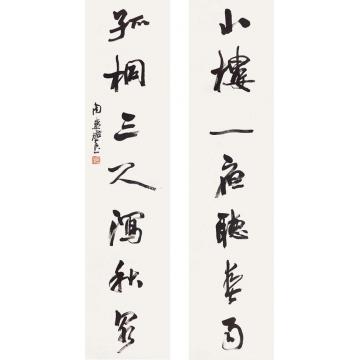 小楼一夜聽春雨
孤桐三尺瀉秋泉